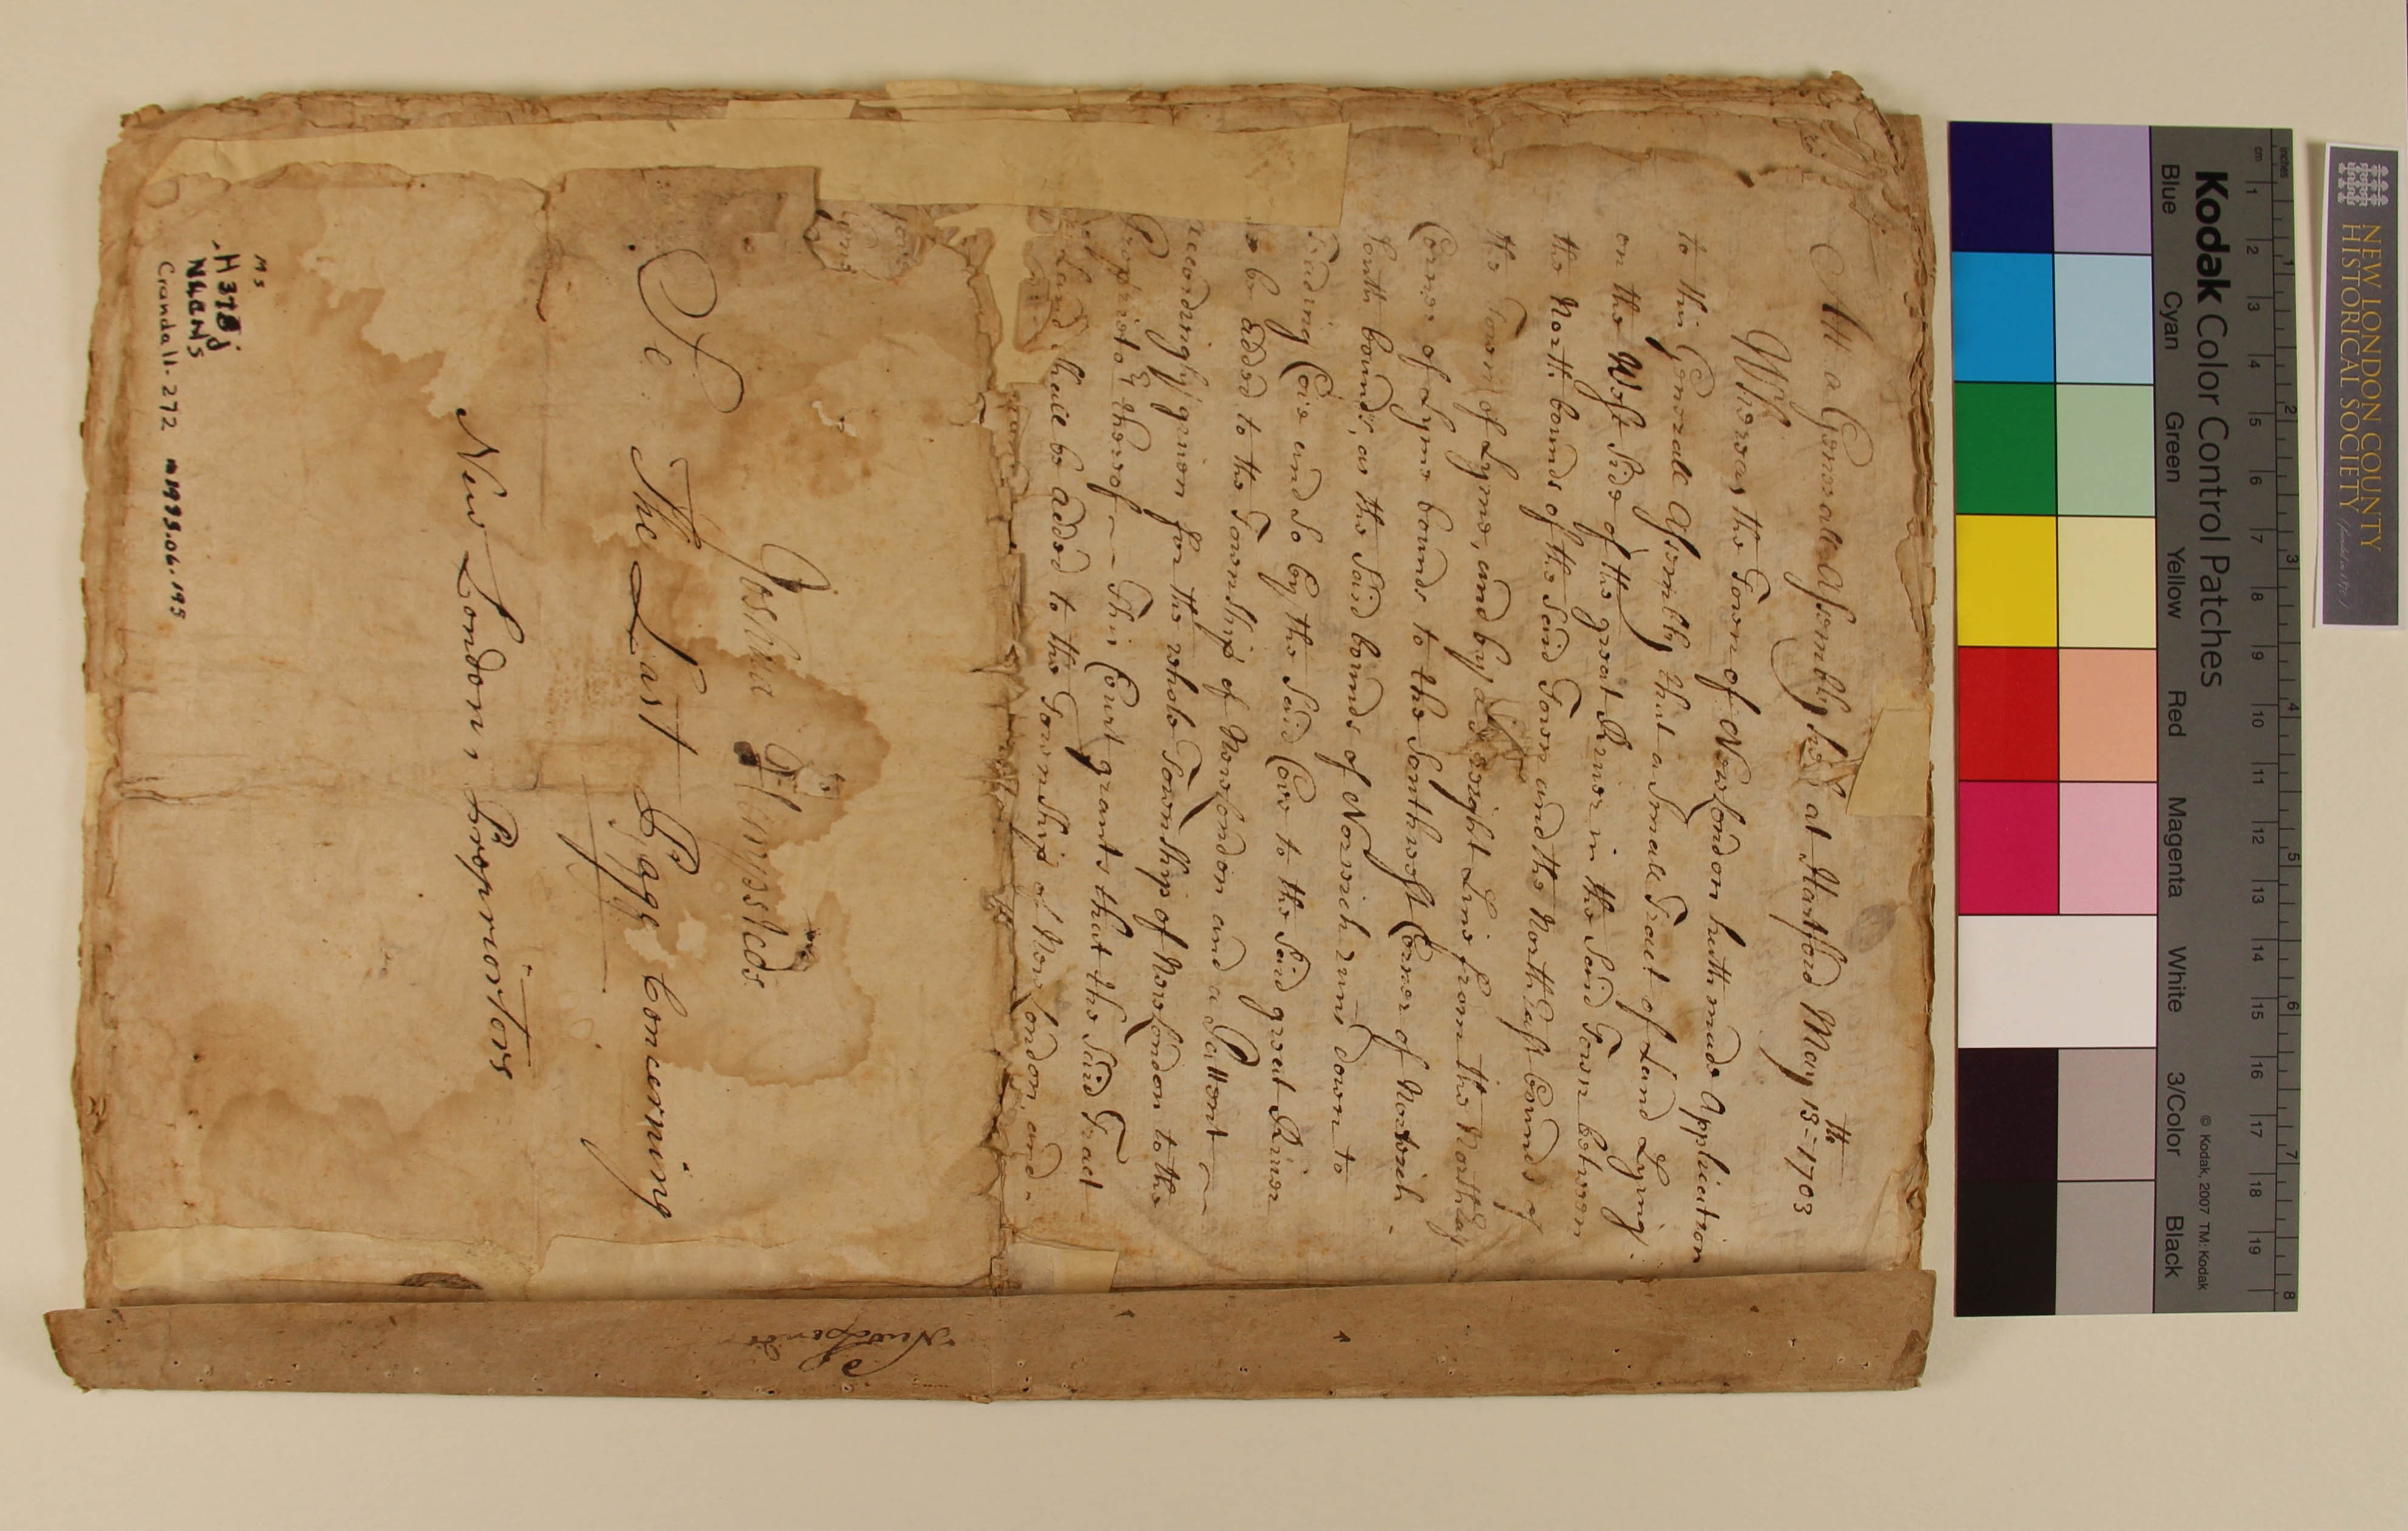 Att a Generall Assembly held at Hartford May 13th 1703
Whereas the Town of New London hath made Application
to this Generall Assembly that a Small Tract of Land Lying
on the West Side of the great River in the Said Town between
the North bounds of the Said Town and the North East bounds of
the Town of Lyme, and by a Streight Line from the North East
Corner of Lyme bounds to the Southwest Corner of Norwich
South bounds, as the Said bounds of Norwich runs down to
Trading Cove and So by the Said Cove to the Said great River
to be added to the Township of New London and a Pattent
accordingly given for the whole Township of New London to the
Proprietors thereof This Court grants that the Said Tract
of Land shall be added to the Township of New London, and
Joshua Hempsteds
Se The Last Page Concerning
New London Proprietors
MS
H378j
NLBNS
Crandall. 272 m1995.06.195
Kodak Color Control Patches
© Kodak, 2007 TM: Kodak
Blue Cyan Green Yellow Red Magenta White 3/Color Black
inches 1 2 3 4 5 6 7 8
cm 1 2 3 4 5 6 7 8 9 10 11 12 13 14 15 16 17 18 19
NEW LONDON COUNTY
HISTORICAL SOCIETY